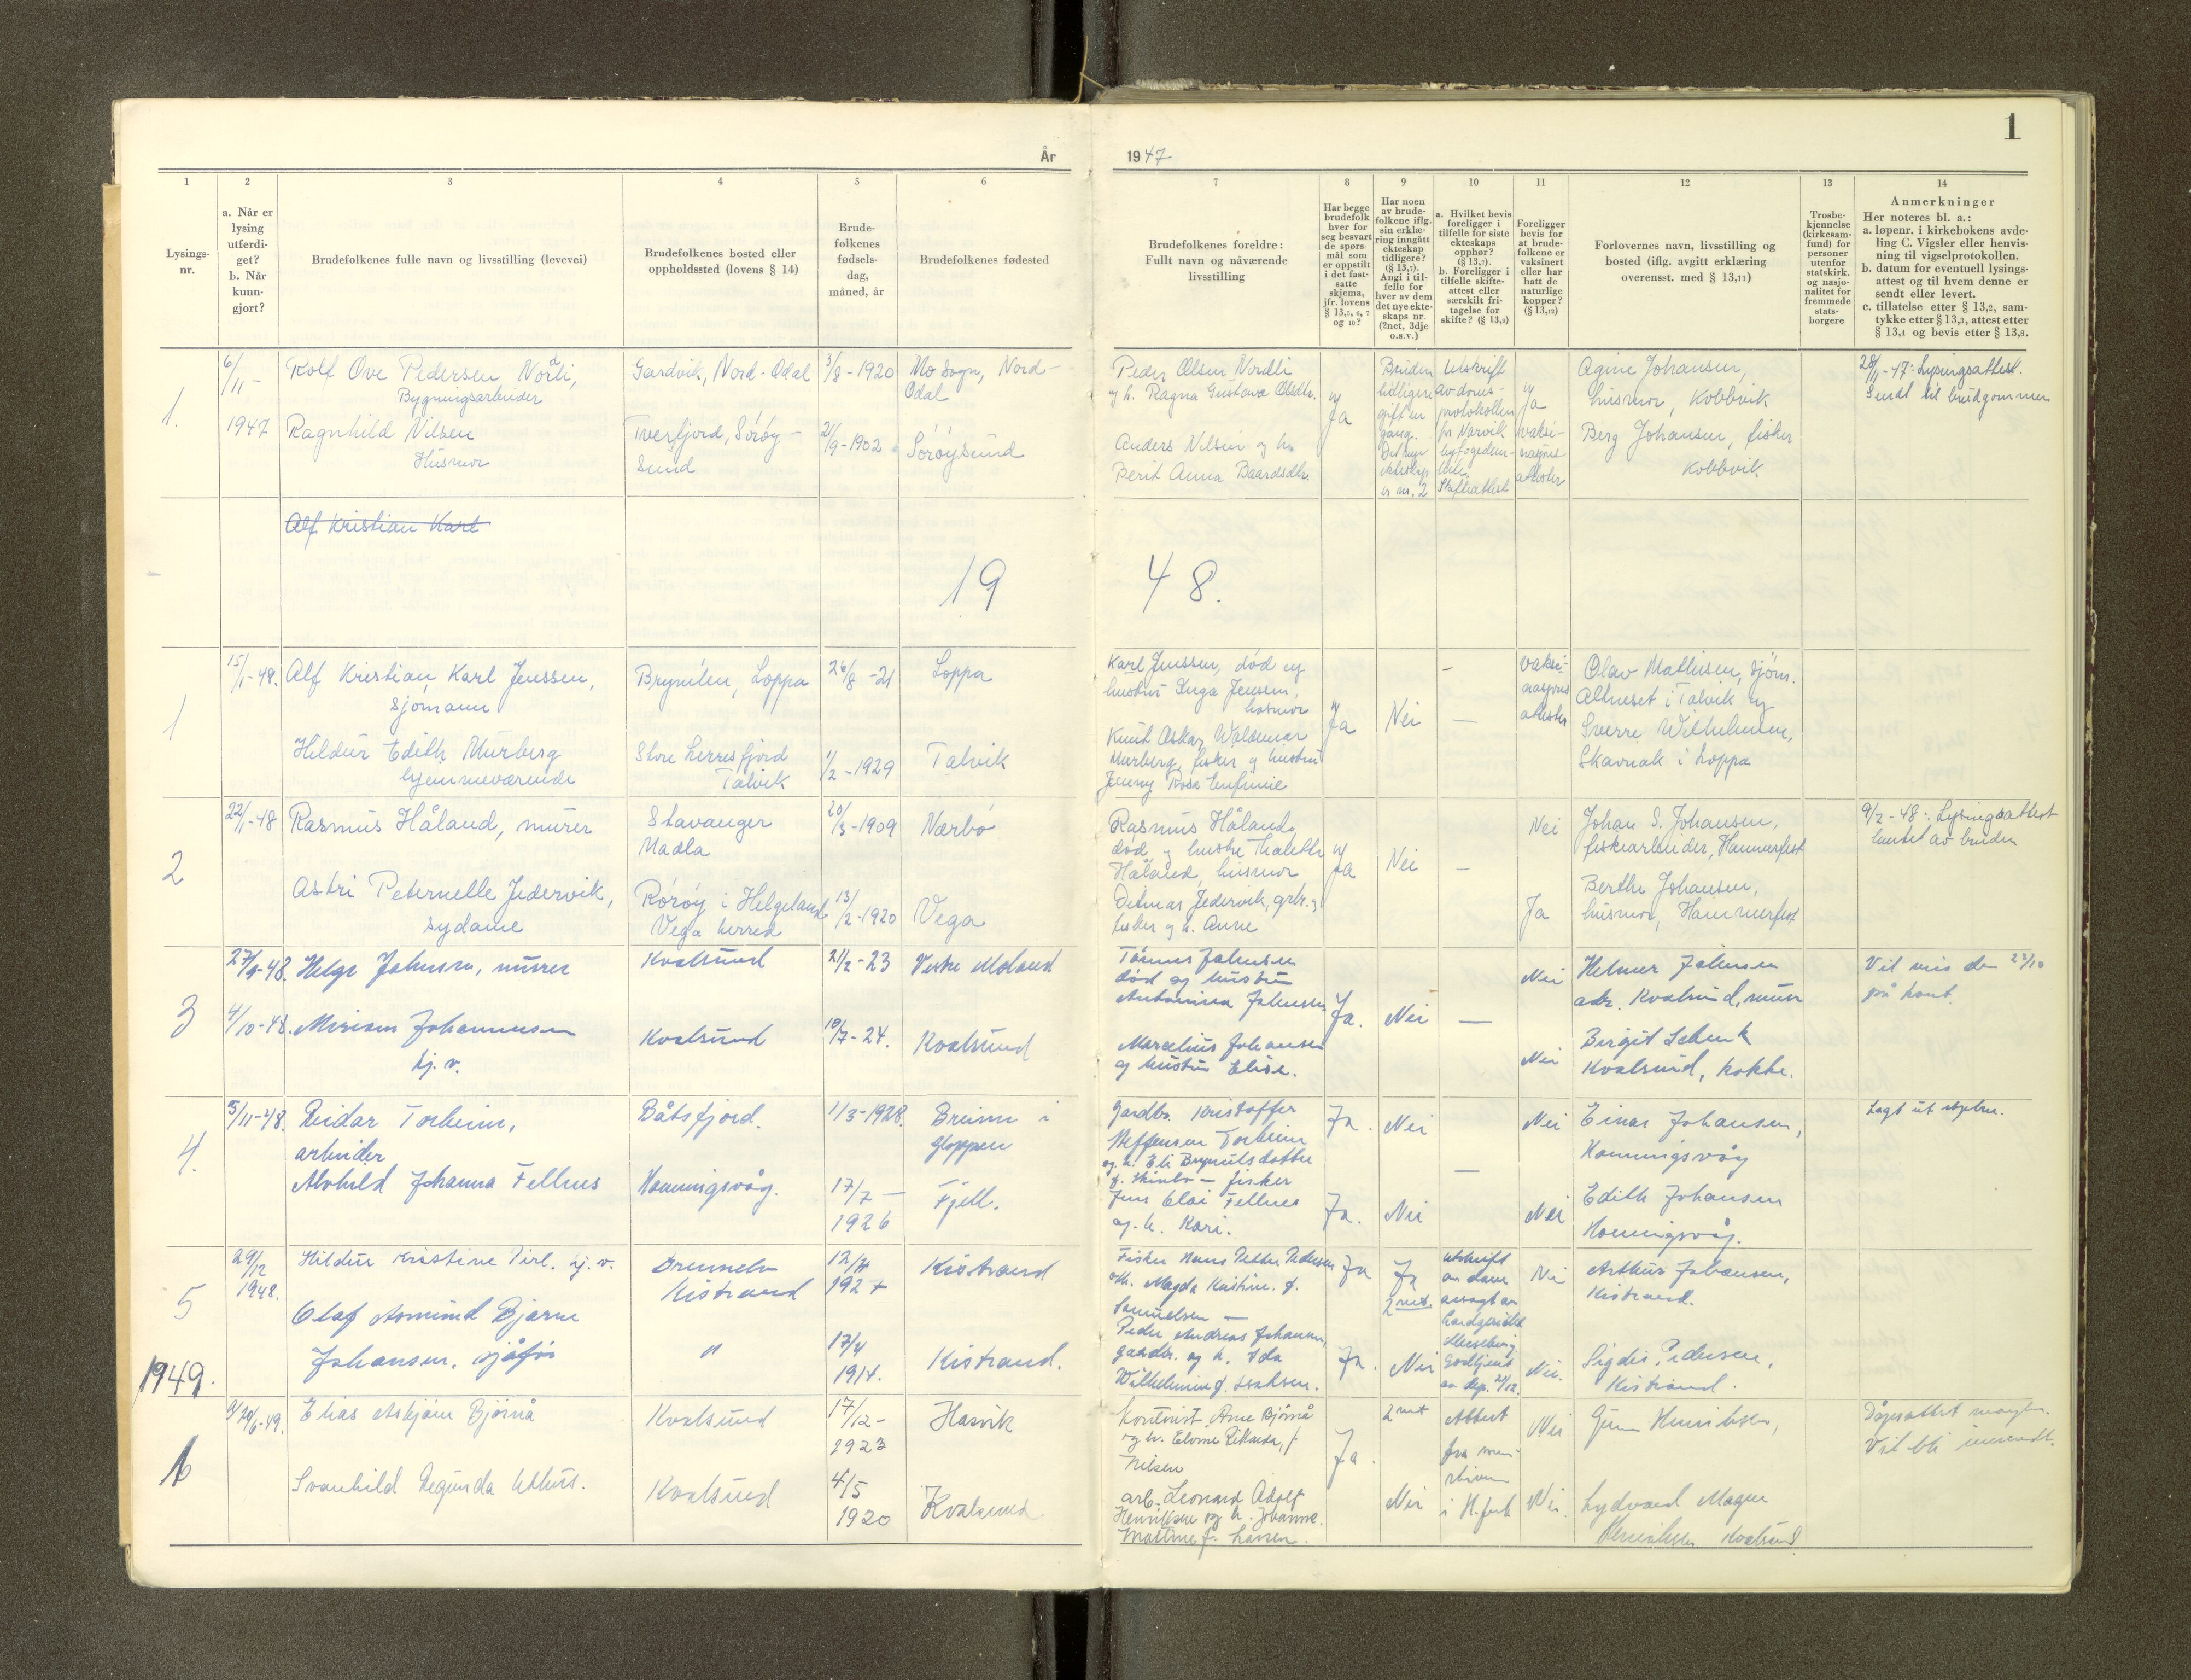 1
År
1947
1
2
3
4
5
6
7
8
9
10
11
12
13
14
Lysings-
nr.
a. Når er
lysing
utferdi-
get?
b. Når
kunn-
gjort?
Brudefolkenes fulle navn og livsstilling (levevei)
Brudefolkenes bosted eller
oppholdssted (lovens § 14)
Brude-
folkenes
fødsels-
dag,
måned, år
Brudefolkenes fødested
Brudefolkenes foreldre:
Fullt navn og nåværende
livsstilling
Har begge
brudefolk
hver for
seg besvart
de spørs-
mål som
er oppstilt
i det fast-
satte
skjema,
jfr. lovens
§ 13,5, 6, 7
og 10?
Har noen
av brude-
folkene iflg.
sin erklæ-
ring inngått
ekteskap
tidligere?
(§ 13,7).
Angi i til-
felle for
hver av dem
det nye ekte-
skaps nr.
(2net, 3dje
o.s.v.)
a. Hvilket bevis
foreligger i
tilfelle for siste
ekteskaps
opphør?
(§ 13,7).
b. Foreligger i
tilfelle skifte-
attest eller
særskilt fri-
tagelse for
skifte? (§ 13,9)
Foreligger
bevis for
at brude-
folkene er
vaksinert
eller har
hatt de
naturlige
kopper?
(§ 13,12)
Forlovernes navn, livsstilling og
bosted (iflg. avgitt erklæring
overensst. med § 13,11)
Trosbe-
kjennelse
(kirkesam-
fund) for
personer
utenfor
statskirk.
og nasjo-
nalitet for
fremmede
stats-
borgere
Anmerkninger
Her noteres bl. a.:
a. løpenr. i kirkebokens avde-
ling C. Vigsler eller henvis-
ning til vigselprotokollen.
b. datum for eventuell lysings-
attest og til hvem denne er
sendt eller levert.
c. tillatelse etter § 13,2, sam-
tykke etter § 13,3, attest etter
§ 13,4 og bevis etter § 13,8.
1.
6/11-
1947
Rolf Ove Pedersen Nordli,
Bygningsarbeider
Ragnhild Nilsen
Husmor
Sandvik, Nord-Odal
Tverfjord, Sörøy-
sund
3/8-1920
21/9-1902
Mo Sogn, Nord-
Odal
Sörøysund
Peder Olsen Nordli
og h. Ragna Gustava Olsdtr.
Anders Nilsen og h.
Berit Anna Baardsdtr.
Ja
Bruden
tidligere
gift en
gang.
Det nye
ekteskap
er nr. 2
Utskrift
av doms-
protokollen
for Narvik
byfogedem-
bete
Skifteattest
Ja
vaksi-
nasjons
attester
Agine Johansen,
husmor, Kobbvik
Berg Johansen, fisker
Kobbvik.
28/11-47: Lysingsattest.
Sendt til brudgommen
Alf Kristian Karl
19
48.
1
15/1-48.
Alf Kristian Karl Jenssen,
Sjømann
Hildur Edith Murberg
hjemmeværende
Brynilen, Loppa
Store Lerresfjord
Talvik
26/8-21
1/2-1929
Loppa
Talvik
Karl Jenssen, død og
hustru Inga Jenssen,
husmor
Knut Oskar Waldemar
Murberg, fisker og hustru
Jenny Rosa Eufemie
Ja
Nei
-
—
vaksi-
nasjons
attester
Olav Mathisen, Sjøm.
Altneset i Talvik og
Sverre Wilhelmsen,
Skavnak i Loppa
2
22/1-48
Rasmus Håland, murer
Astri Peternelle Jedervik,
sydame
Stavanger
Madla
Rørøy i Helgeland
Vega herred
20/3-1909
13/2-1920
Nærbø
Vega
Rasmus Håland,
død og hustru
Håland, husmor
Detmar Jedervik, grbr. og
fisker og h. Anne
Ja
Nei
—
Nei
Ja
Johan S. Johansen,
fiskearbeider, Hammerfest
Berthe Johansen,
husmor, Hammerfest
9/2-48: Lysingsattest
hentet av bruden
3
27/9-48.
4/10-48.
Helge Johnsen, murer
Miriam Johannessen
hj. v.
Kvalsund
Kvalsund
21/2-23
10/7-24.
Vestre Moland
Kvalsund
død og hustru
Antonina Johnsen
Marcelius Johansen
og hustru Elise.
Ja.
Nei
—
Nei
Nei
Helmer Johnsen
adr. Kvalsund, murer
Birgit Schenk
Kvalsund, kokke.
Vil vies den 23/10
på hort.
4.
5/11-48.
Reidar Torheim,
arbeider
Alvhild Johanna Fellnes
Båtsfjord.
Honningsvåg.
1/3-1928.
17/7—
1926
Breim i
Gloppen
Fjell.
Gardbr. Kristoffer
Steffensen Torheim
og h. Eli Brynulsdotter
f. Skinlo — fisker
Jens Elai Fellnes
og h. Kari.
Ja.
Ja.
Nei
Nei
—
Nei
Nei
Einar Johansen,
Honningsvåg
Edith Johansen
Honningsvåg.
5
29/12
1948.
Hildur Kristine Pirl. hj. v.
Olaf Asmund Bjarne
Johansen, sjåfør
Brennelv
Kistrand
"
12/4
1927
17/4
1914.
Kistrand
Kistrand.
Fisker Hans Petter Pedersen
og h. Magda Kristine. f.
Samuelsen —
Peder Andreas Johansen,
gaardbr. og h. Ida
Wilhelmine f. Isaksen.
Ja
Ja.
Ja
2net.
Nei
utskrift
av dom
avsagt av
Nei
Nei.
Arthur Johansen,
Kistrand.
Sigdis Pedersen,
Kistrand.
1949.
1
Elias Asbjørn Bjørnå
Svanhild Regunda Uthus.
Kvalsund
Kvalsund
17/12-
1923
4/5
1920
Hasvik
Kvalsund
Kontorist Arne Bjørnå
Nilsen
arb. Leonard Adolf
Henriksen og h. Johanne
Martine f. Larsen.
Ja.
2net
Nei
Attest
fra
i H.fest
Nei
Nei.
Gunn Henriksen,
Lydvard Magne
Henriksen Kvalsund
Dåpsattest mangler.
Vil bli innsendt.